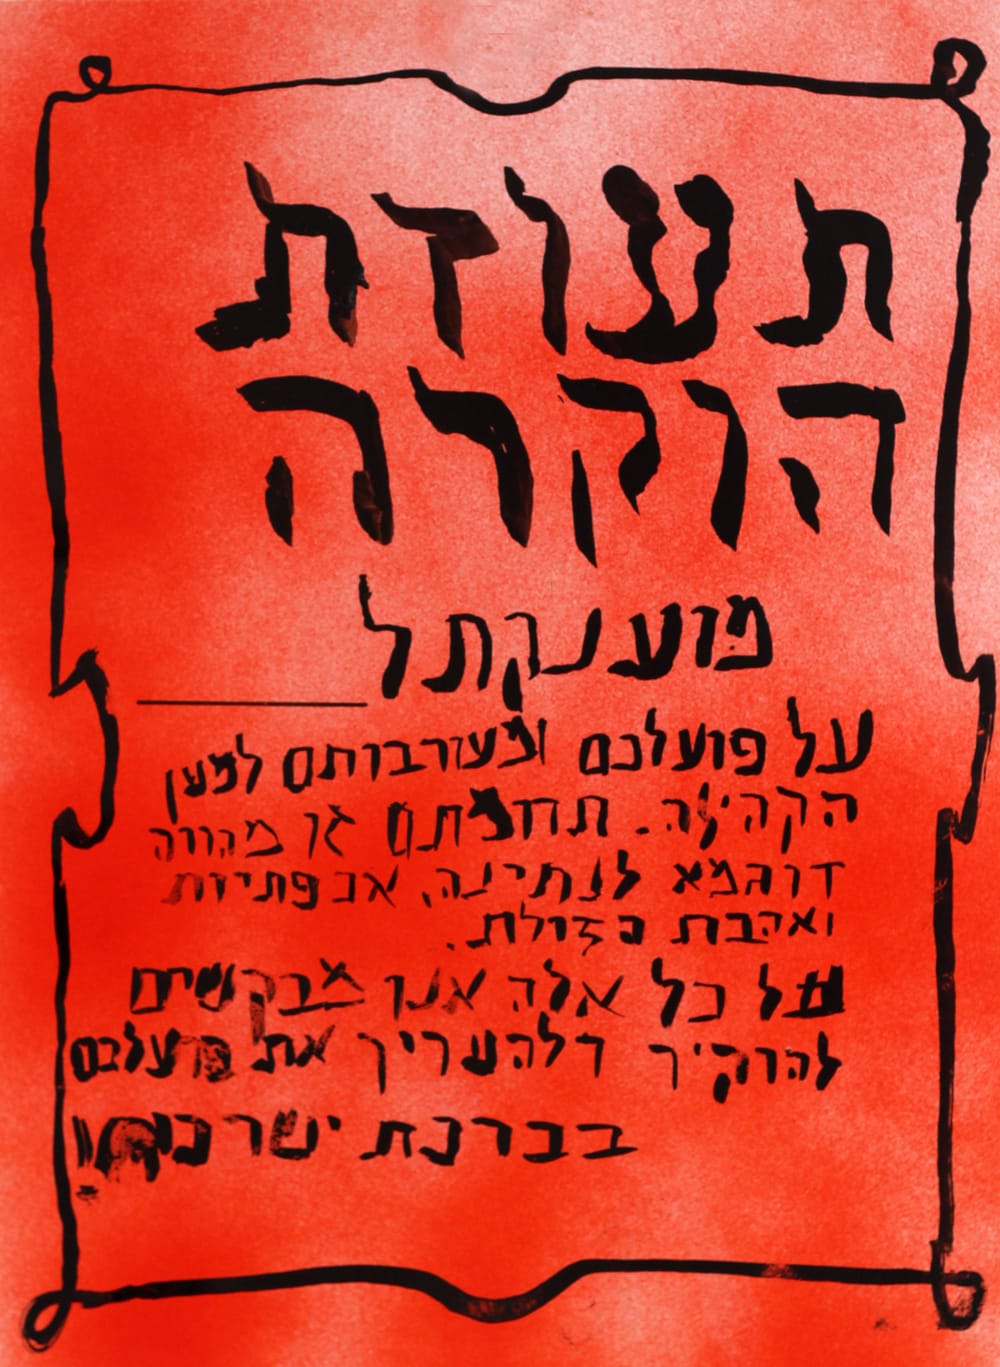 תעודת
הוקרה
מוענקת ל
על פועלכם ומעורבותם למען
הקהילה. תרומתם זו מהווה
דוגמא לנתינה, אכפתיות
ואהבת הזולת.
על כל אלה אנו מבקשים
להוקיר ולהעריך את פועלכם
בברכת ישר